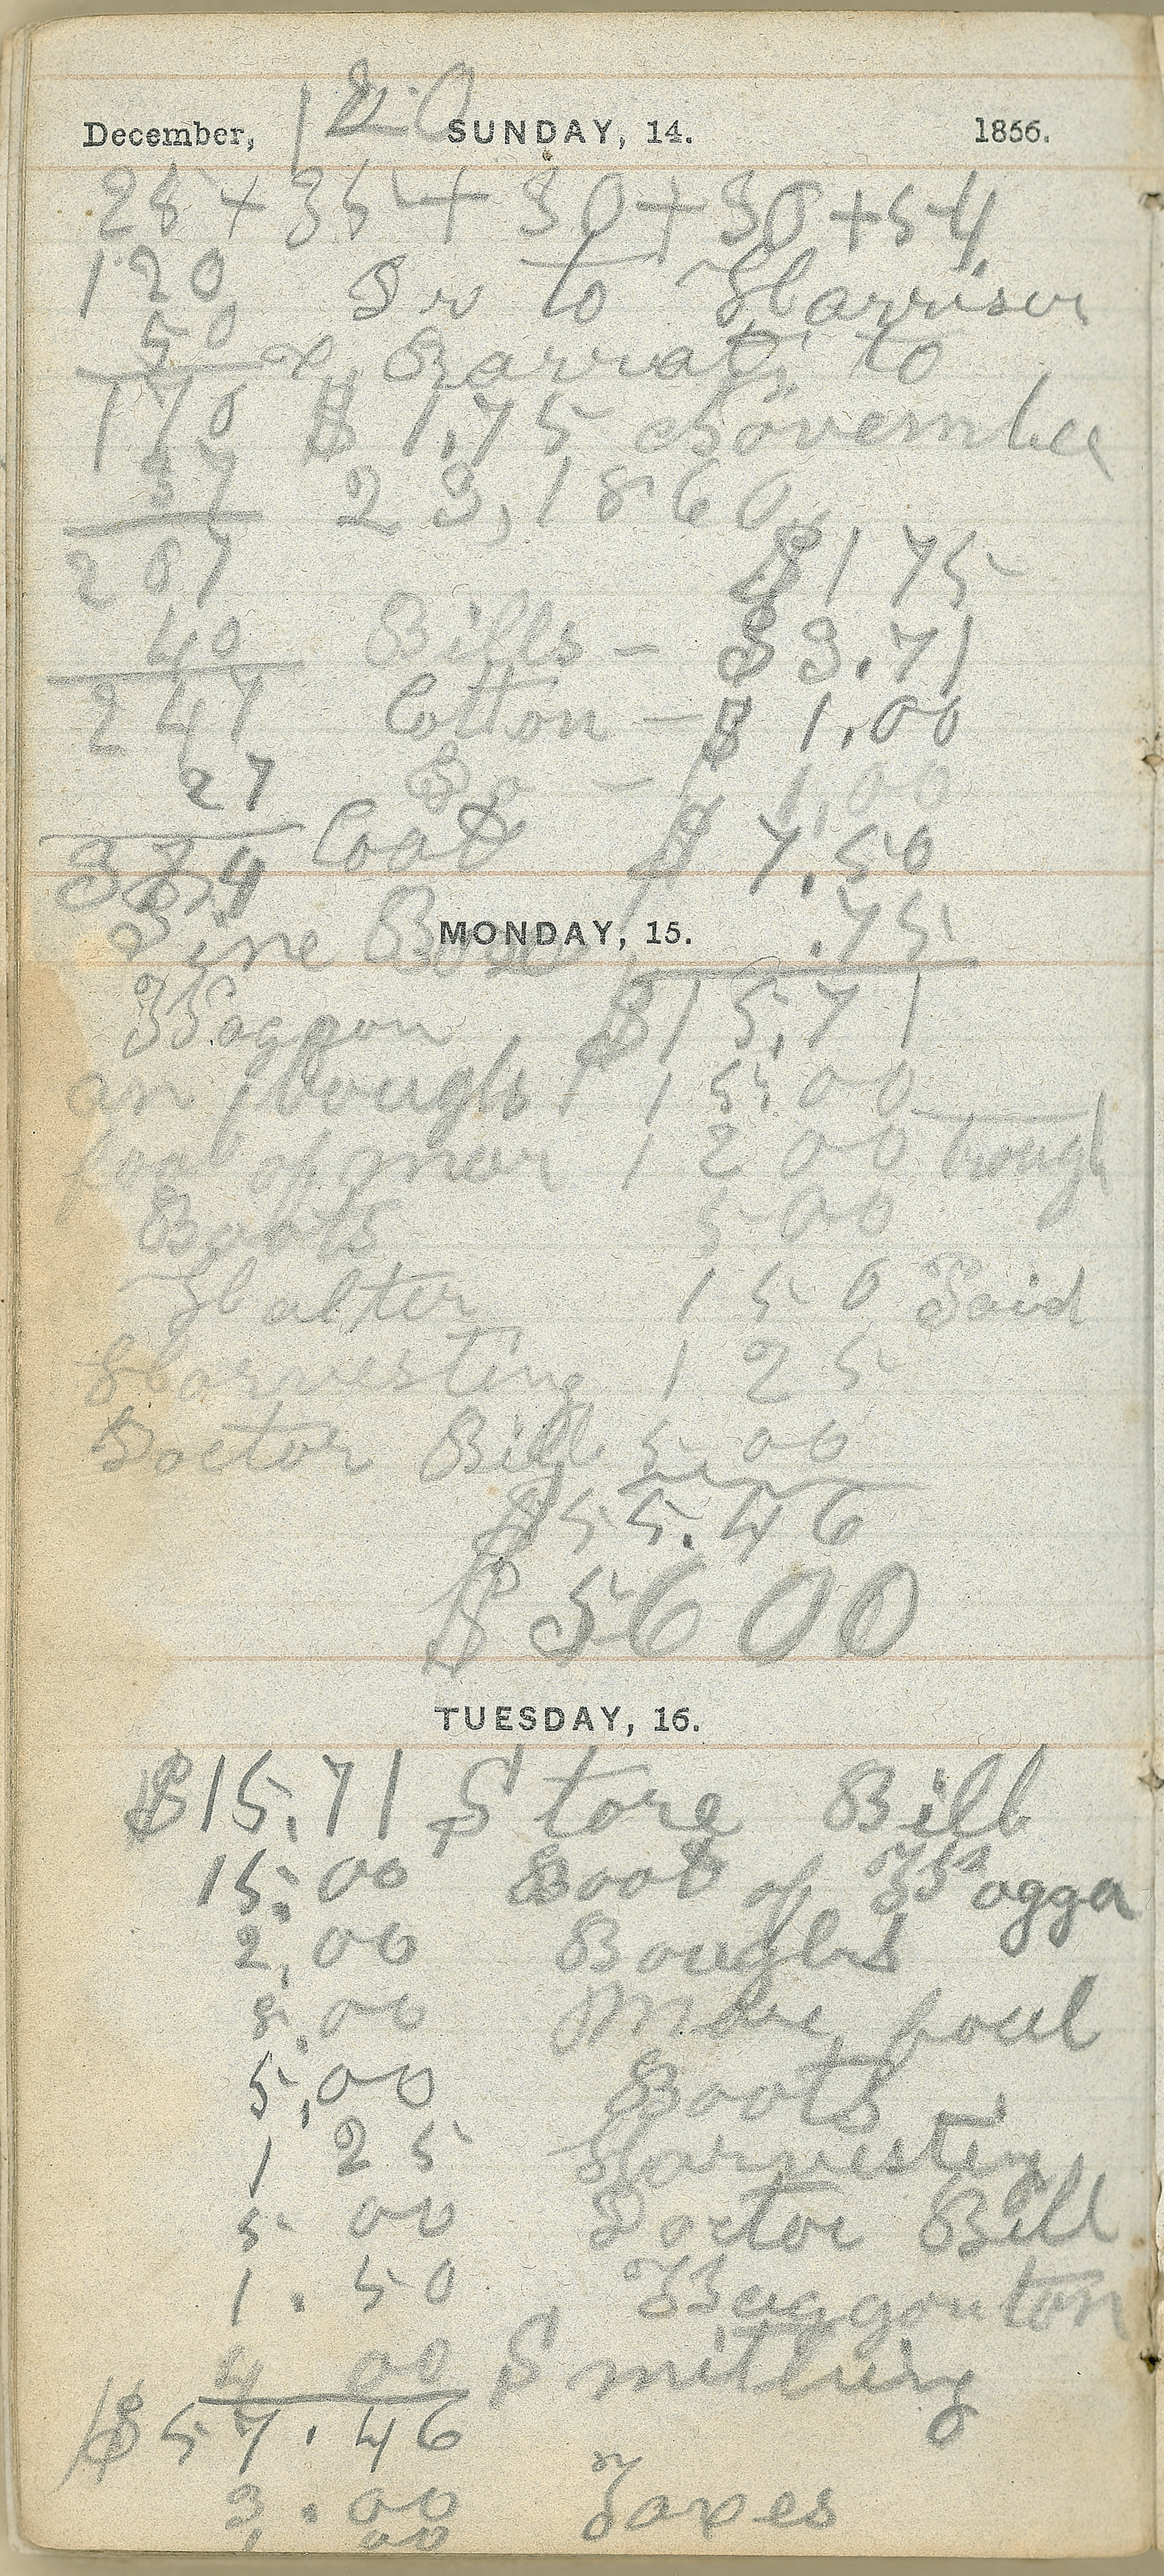 120
December, SUNDAY, 14. 1856.
28 + 35 + 30 + 30 + 54
120 Dr to Harrison
50 & Barratt to
170 $ 1.75 November
37 23, 1860
207 $1 75
40 Bills - $3.71
247 Cotton - $ 1.00
27 Do - 1.00
Coat $ 7.50
MONDAY, 15. .75
Waggon $15.71
15.00
12 00 trough
Boots 5 00
Halter 1 50 Paid
Harvesting 1 25
Doctor Bill 5.00
$55.46
$ 56 00
TUESDAY, 16.
$15.71 Store Bill
15.00 Boot of Waggon
2.00 Boughs
8.00 Mare foul
5.00 Boots
1 25 Harvesting
5 00 Doctor Bill
1.50
4 00 Smithing
$57.46
3.00 Taxes